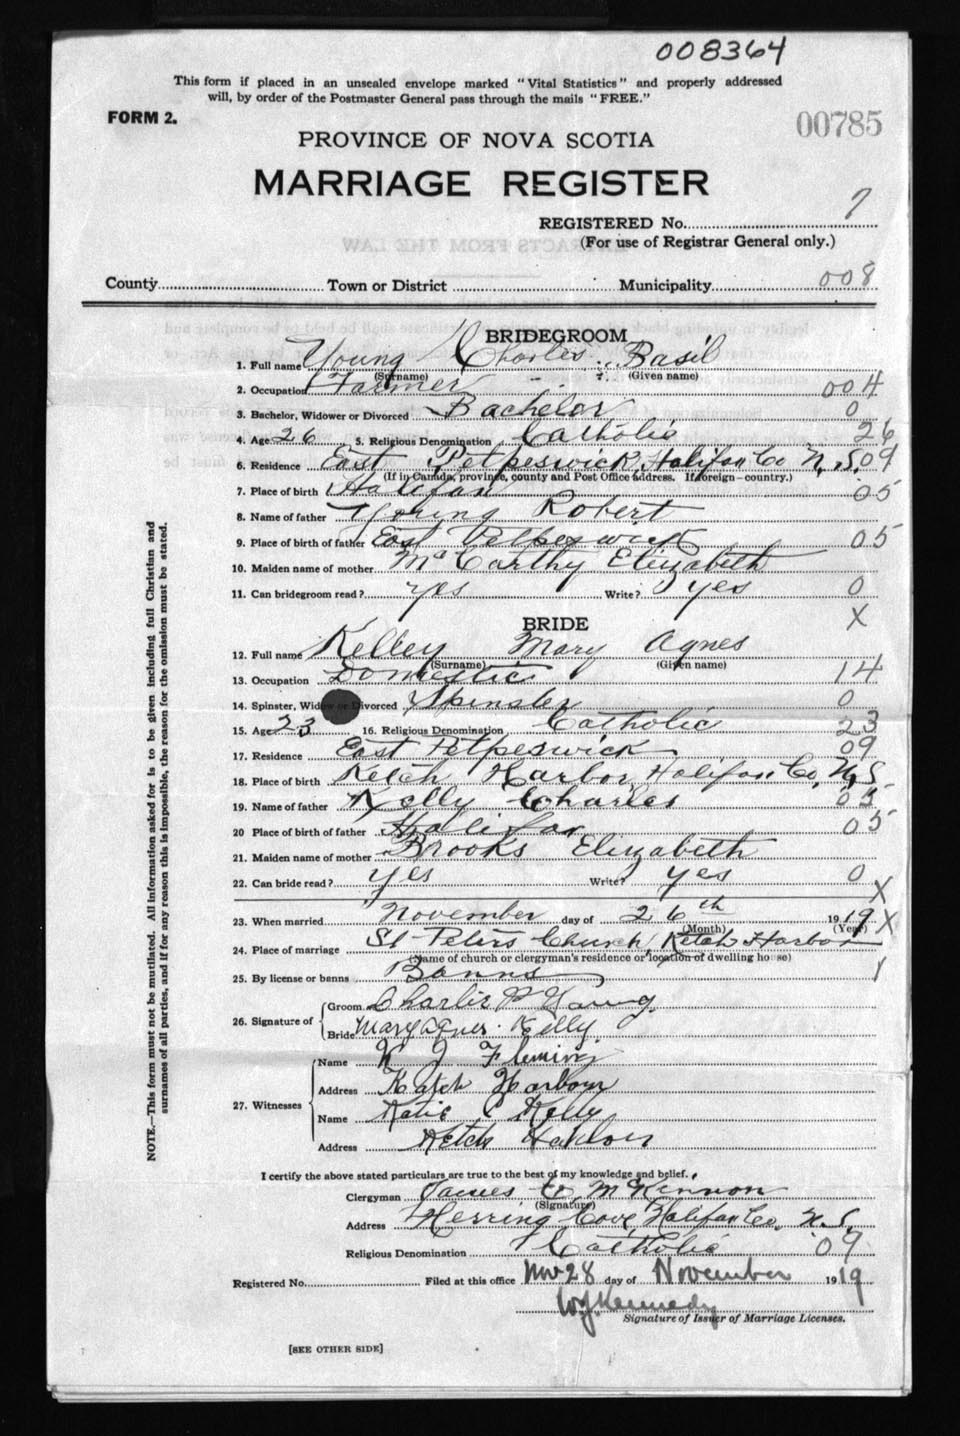 008364
This form if placed in an unsealed envelope marked "Vital Statistics" and properly addressed
will, by order of the Postmaster General pass through the mails "FREE."
FORM 2.
00785
PROVINCE OF NOVA SCOTIA
MARRIAGE REGISTER
REGISTERED No. 7
(For use of Registrar General only.)
County Town or District Municipality 008
BRIDEGROOM
1. Full name Young Charles Basil
(Surname) (Given name)
2. Occupation Farmer 004
3. Bachelor, Widower or Divorced Bachelor 0
4. Age 26 5. Religious Denomination Catholic 26
6. Residence East Petpeswick, Halifax Co N.S. 09
(If in Canada, province, county and Post Office address. If foreign—country.)
7. Place of birth Halifax 05
8. Name of father Young Robert
9. Place of birth of father East Petpeswick 05
10. Maiden name of mother McCarthy Elizabeth
11. Can bridegroom read? yes Write? yes 0
X
BRIDE
12. Full name Kelley Mary Agnes
(Surname) (Given name)
13. Occupation Domestic 14
14. Spinster, Widow or Divorced Spinster 0
15. Age 23 16. Religious Denomination Catholic 23
17. Residence East Petpeswick 09
18. Place of birth Ketch Harbor, Halifax Co, N.S.
19. Name of father Kelly Charles 05
20 Place of birth of father Halifax 05
21. Maiden name of mother Brooks Elizabeth
22. Can bride read? yes Write? yes 0
X
23. When married November day of 26th 1919 X
(Month) (Year)
24. Place of marriage St Peters Church, Ketch Harbor
(Name of church or clergyman's residence or location of dwelling house)
25. By license or banns Banns
26. Signature of Groom Charlie B Young
Bride Mary Agnes Kelly
27. Witnesses Name Fleming
Address Ketch Harbour
Name Katie Kelly
Address Ketch Harbour
I certify the above stated particulars are true to the best of my knowledge and belief.
Clergyman James C. McKinnon
(Signature)
Address Herring Cove Halifax Co. N.S.
Religious Denomination Catholic 09
Registered No. Filed at this office Nov 28 day of November 1919
W.J. Kennedy
Signature of Issuer of Marriage Licenses.
[SEE OTHER SIDE]
NOTE.—This form must not be mutilated. All information asked for is to be given including full Christian and
surnames of all parties, and if for any reason this is impossible, the reason for the omission must be stated.